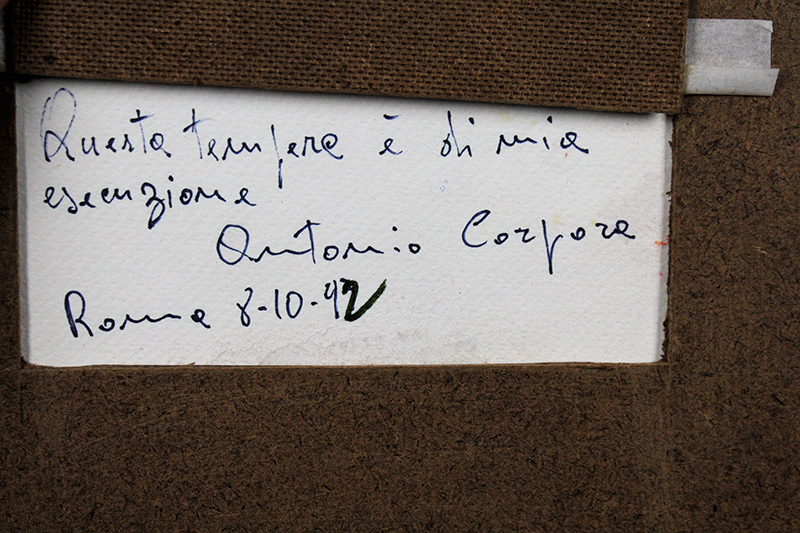 Questa tempera è di mia
esecuzione
Antonio Corpora
Roma 8-10-92